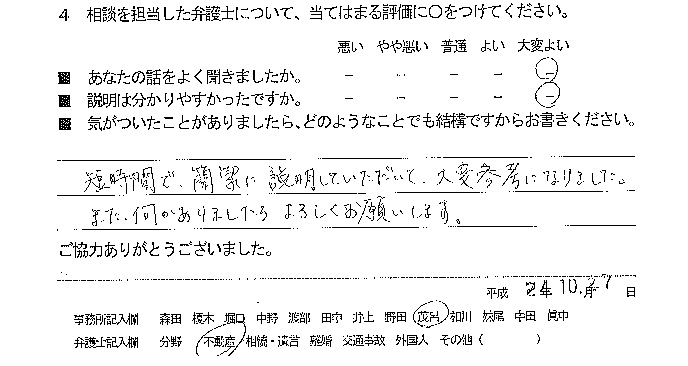 4 相談を担当した弁護士について、当てはまる評価に○をつけてください。
悪い やや悪い 普通 よい 大変よい
あなたの話をよく聞きましたか。 － － － － －
説明は分かりやすかったですか。 － － － － －
気がついたことがありましたら、どのようなことでも結構ですからお書きください。
短時間で、簡潔に説明していただいて、大変参考になりました。
また、何かありましたらよろしくお願いします。
ご協力ありがとうございました。
平成 24 10. 27 日
事務所記入欄 森田 榎木 堀口 中野 渡部 田中 井上 野田 茂呂 和川 妹尾 中田 眞中
弁護士記入欄 分野 不動産 相続・遺言 離婚 交通事故 外国人 その他（ ）